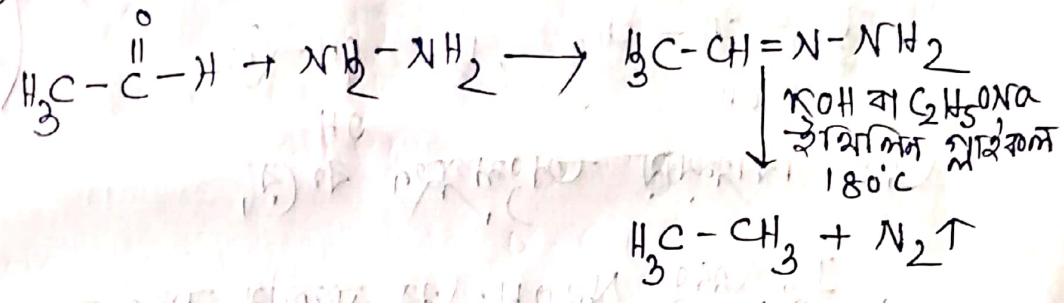 O
||
H₃C-C-H + NH₂-NH₂ → H₃C-CH=N-NH₂
↓ KOH বা C₂H₅ONa
ইথিলিন গ্লাইকল
180°C
H₃C-CH₃ + N₂↑